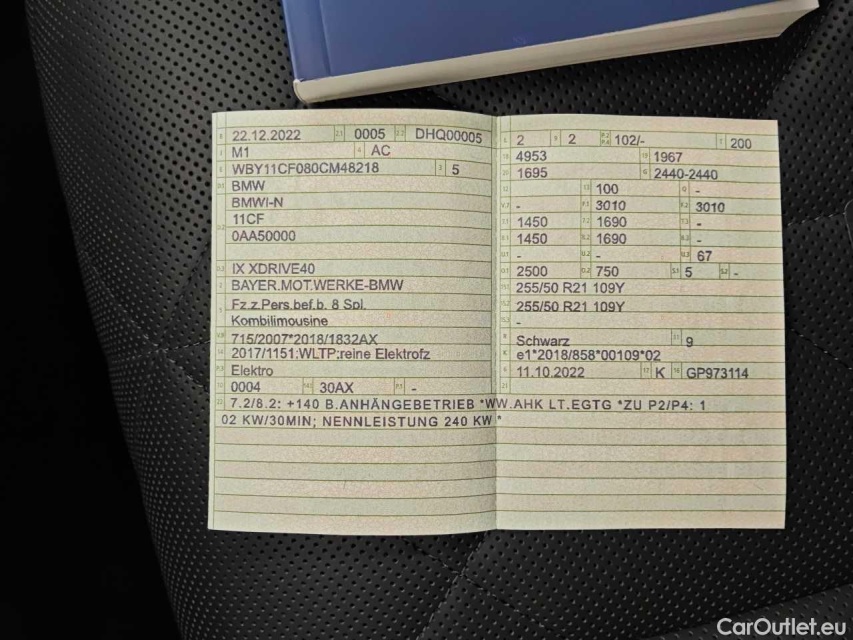 22.12.2022 0005 DHQ00005
M1 AC
WBY11CF080CM48218 5
BMW
BMWI-N
11CF
0AA50000
IX XDRIVE40
BAYER.MOT.WERKE-BMW
Fz.z.Pers.bef.b. 8 Spl.
Kombilimousine
715/2007*2018/1832AX
2017/1151;WLTP;reine Elektrofz
Elektro
0004 30AX -
7.2/8.2: +140 B.ANHÄNGEBETRIEB *WW.AHK LT.EGTG *ZU P2/P4: 1
02 KW/30MIN; NENNLEISTUNG 240 KW *
2 2 102/- 200
4953 1967
1695 2440-2440
100 -
- 3010 3010
1450 1690 -
1450 1690 -
- - 67
2500 750 5 -
255/50 R21 109Y
255/50 R21 109Y
-
Schwarz 9
e1*2018/858*00109*02
11.10.2022 K GP973114
CarOutlet.eu